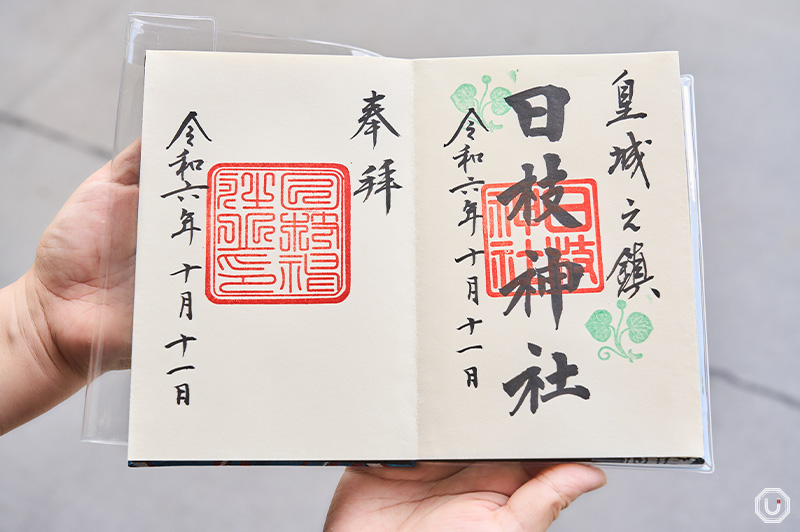 皇城之鎮
日枝神社
日枝
神社
令和六年十月十一日
奉拝
令和六年十月十一日